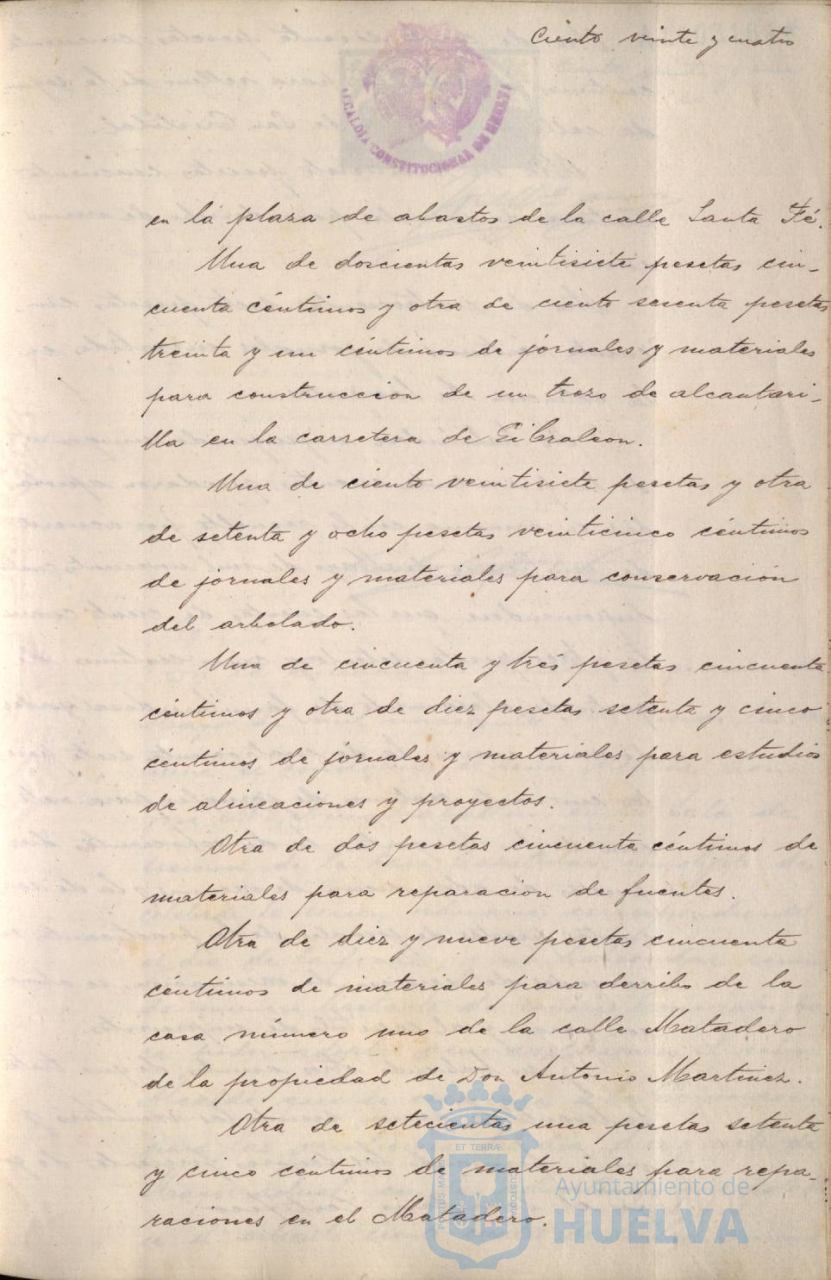 Ciento veinte y cuatro
ALCALDIA CONSTITUCIONAL DE HUELVA
en la plaza de abastos de la calle Santa Fé.
Una de doscientas veintisiete pesetas cin-
cuenta céntimos y otra de ciento sesenta pesetas
treinta y un céntimos de jornales y materiales
para construccion de un trozo de alcantari-
lla en la carretera de Gibraleon.
Una de ciento veintisiete pesetas y otra
de setenta y ocho pesetas veinticinco céntimos
de jornales y materiales para conservación
del arbolado.
Una de cincuenta y tres pesetas cincuenta
céntimos y otra de diez pesetas setenta y cinco
céntimos de jornales y materiales para estudios
de alineaciones y proyectos.
Otra de dos pesetas cincuenta céntimos de
materiales para reparacion de fuentes.
Otra de diez y nueve pesetas cincuenta
céntimos de materiales para derribo de la
casa número uno de la calle Matadero
de la propiedad de Don Antonio Martinez.
Otra de setecientas una pesetas setenta
y cinco céntimos de materiales para repa-
raciones en el Matadero.
ET TERRÆ
Ayuntamiento de
HUELVA